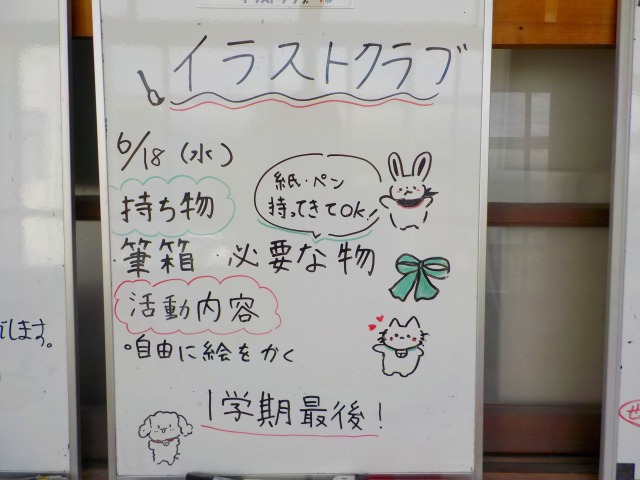 イラストクラブ
6/18（水）
紙・ペン
持ってきてOK!
持ち物
筆箱 必要な物
活動内容
°自由に絵をかく
1学期最後!
します。
せ